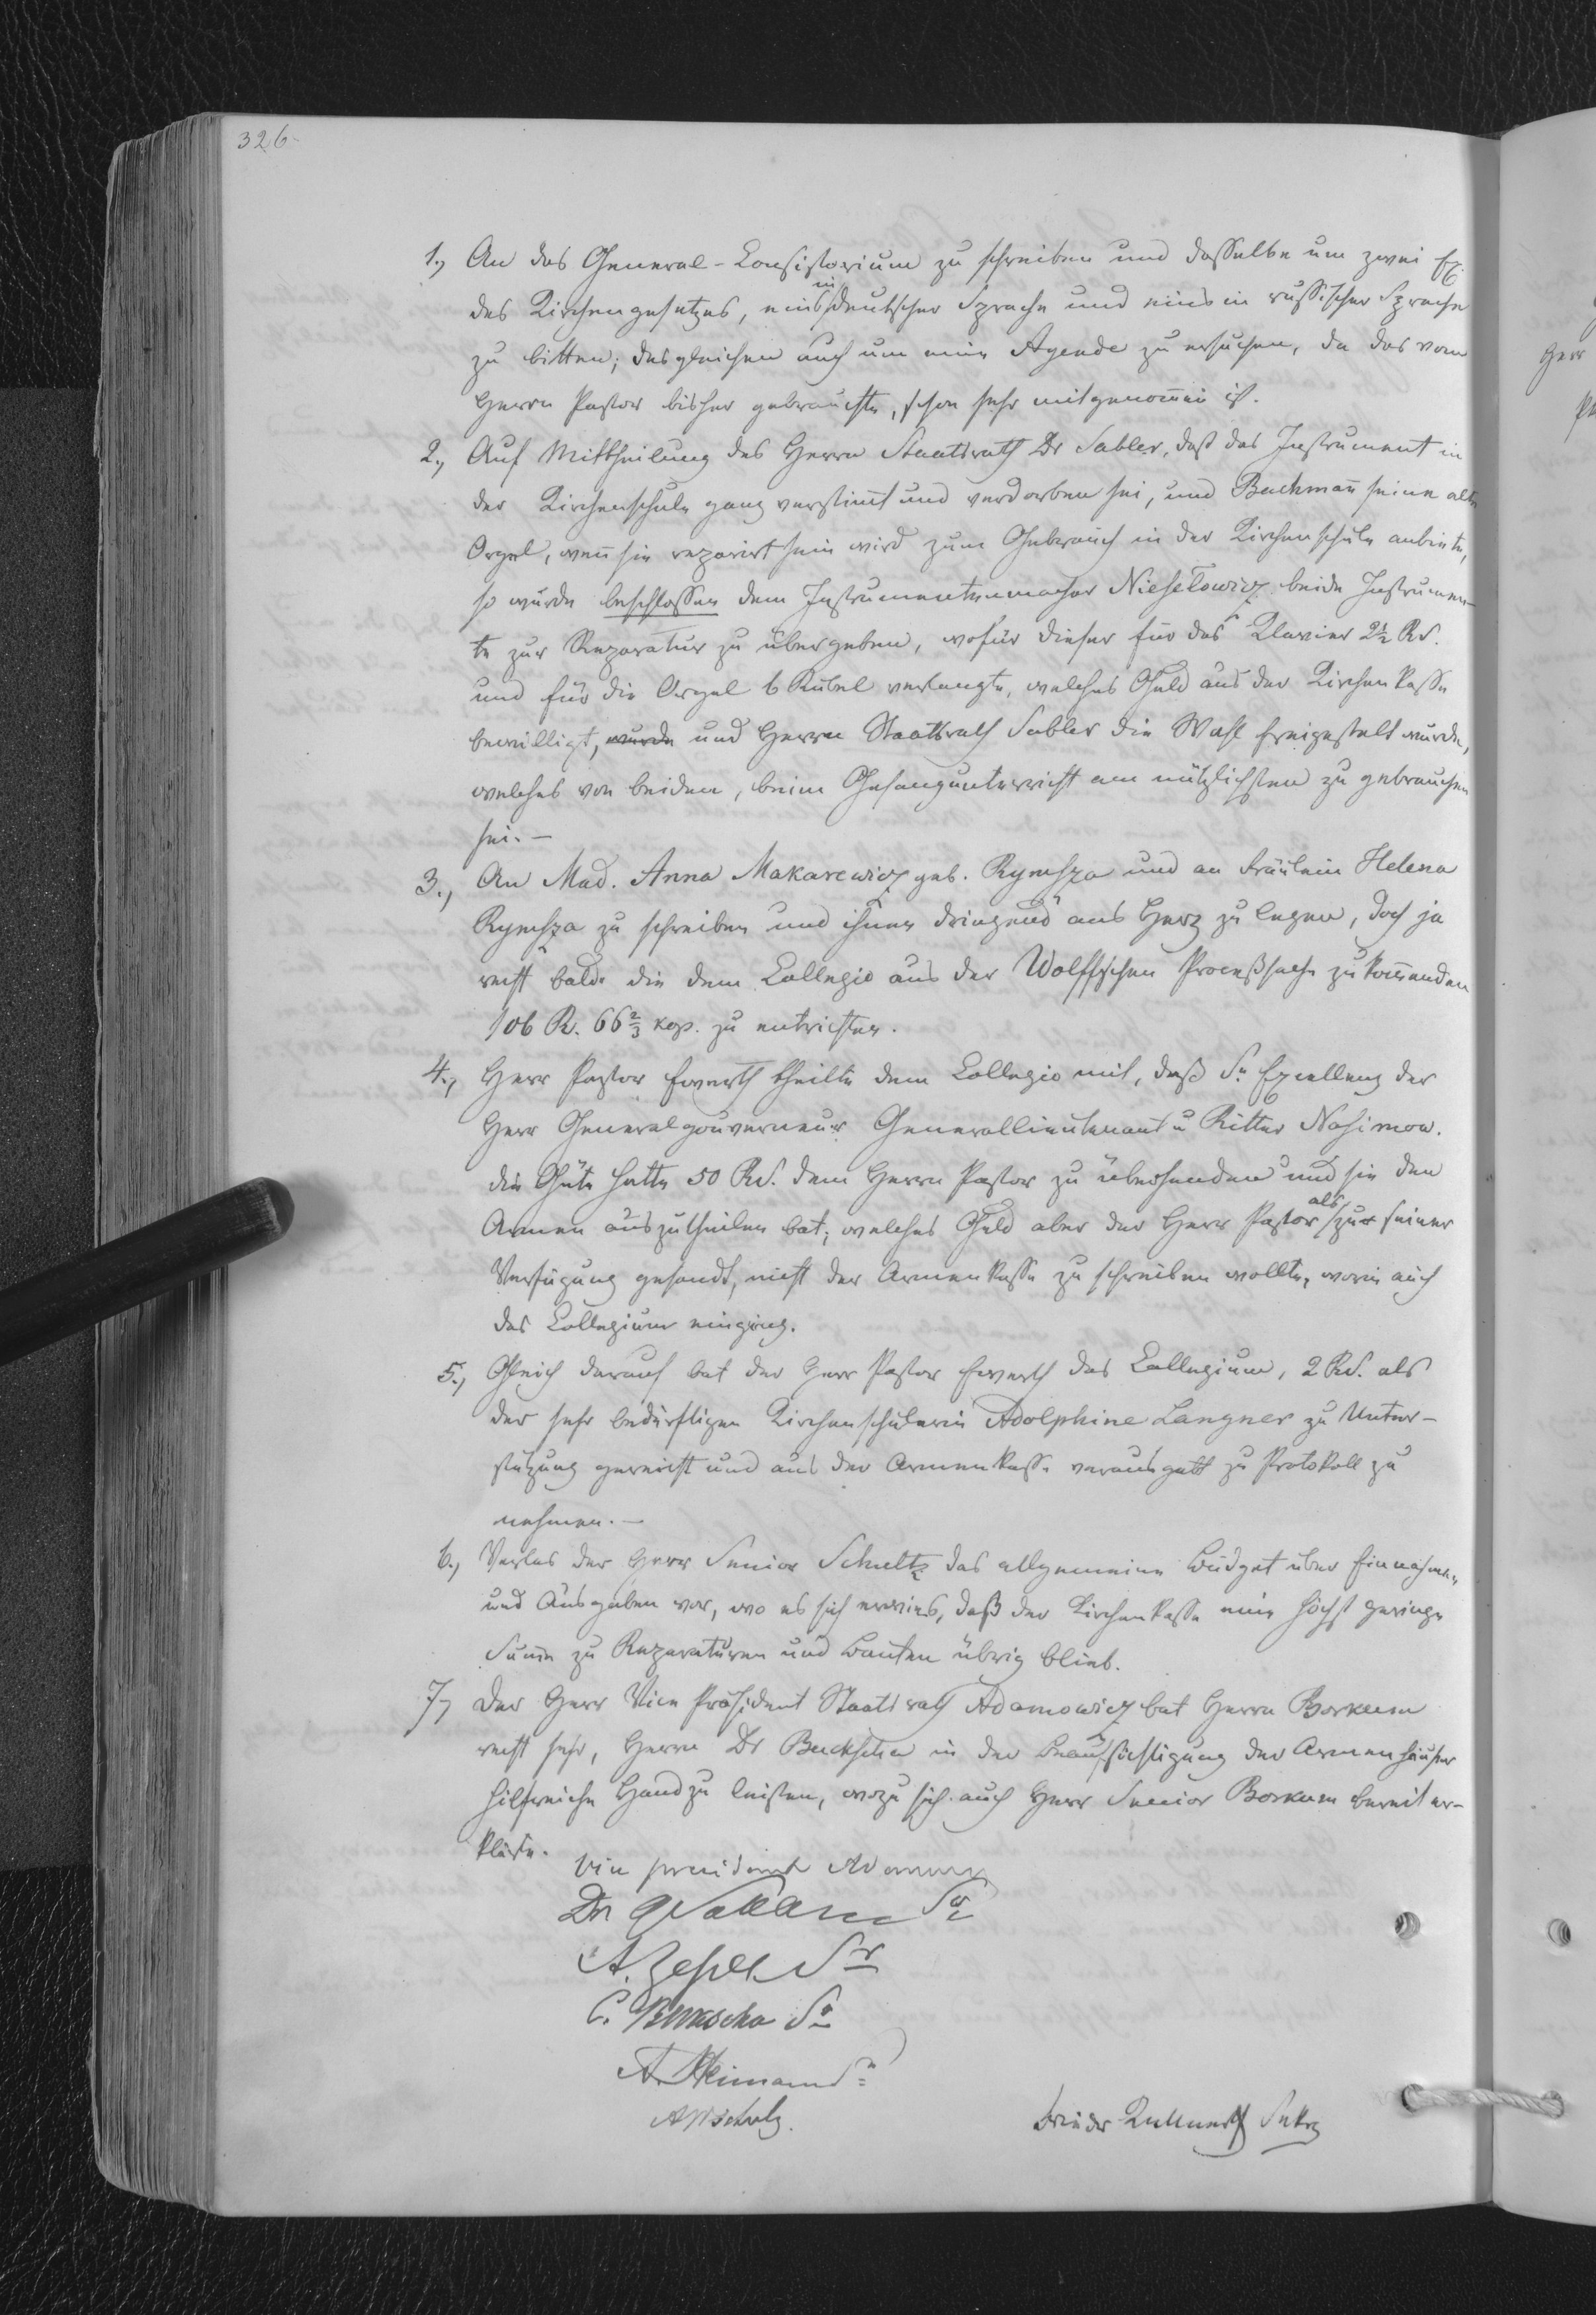 326
1., An das General-Consistorium zu schreiben und dasselbe um zwei Ex.
des Kirchengesetzes, eins in deutscher Sprache und eins in russischer Sprache
zu bitten; desgleichen auch um eine Agende zu ersuchen, da das vom
Herrn Pastor bisher gebrauchte, schon sehr mitgenom̄en ist.
2., Auf Mittheilung des Herrn Staatsrath Dr Sabler, daß das Instrument in
der Kirchenschule ganz verstim̄t und verdorben sei, und Bachman̄ seine alte
Orgel, wen̄ sie reparirt sein wird zum Gebrauch in der Kirchenschule anbiete,
so wurde beschlossen dem Instrumentenmacher Nieselowicz beide Instrumen-
te zur Reparatur zu übergeben, wofür dieser für das Klavier 2½ RS.
und für die Orgel 6 Rubel verlangte, welches Geld aus der Kirchenkasse
bewilligt, wurde und Herrn Staatsrath Sabler die Wahl freigestelt wurde,
welches von beiden, beim Gesangunterricht am nützlichsten zu gebrauchen
sei. —
3., An Mad. Anna Makarewicz geb. Rymsza und an Fräulein Helena
Rymsza zu schreiben und ihnen dringend ans Herz zu legen, doch ja
recht bald die dem Collegio aus der Wolffschen Proceßsache zukom̄enden
106 R. 66⅔ kop. zu entrichten.
4., Herr Pastor Ewerth theilte dem Collegio mit, daß Se Excellenz der
Herr Generalgouverneur Generallieutenant u Ritter Nasimow.
die Güte hatte 50 RS. dem Herrn Pastor zu übersenden und sie den
Armen auszutheilen bat; welches Geld aber der Herr Pastor als zur seiner
Verfügung gesandt, nicht der Armenkasse zu schreiben wollte, worin auch
das Collegium einging.
5., Gleich darauf bat der Herr Pastor Ewerth das Collegium, 2 RS. als
der sehr bedürftigen Kirchenschülerin Adolphine Langner zu Unter-
stützung gereicht und aus der Armenkasse verausgabt zu Protokoll zu
nehmen. —
6., Verlas der Herr Senior Schultz das allgemeine Budget über Einnahmen
und Ausgaben vor, wo es sich erwies, daß der Kirchenkasse eine höchst geringe
Sum̄e zu Reparaturen und Bauten übrig blieb.
7., Der Herr Vice Präsident Staatsrath Adamowicz bat Herrn Borkum
recht sehr, Herrn Dr Buckscha in der Beaufsichtigung der Armenhäuser
hilfreiche Hand zu leisten, wozu sich auch Herr Senior Borkum bereit er-
klärte.
Vice president Adamowicz
Dr Sr
A. Sr
C. Bukscha Sr
A. Sr
A Schulz.
Sekr